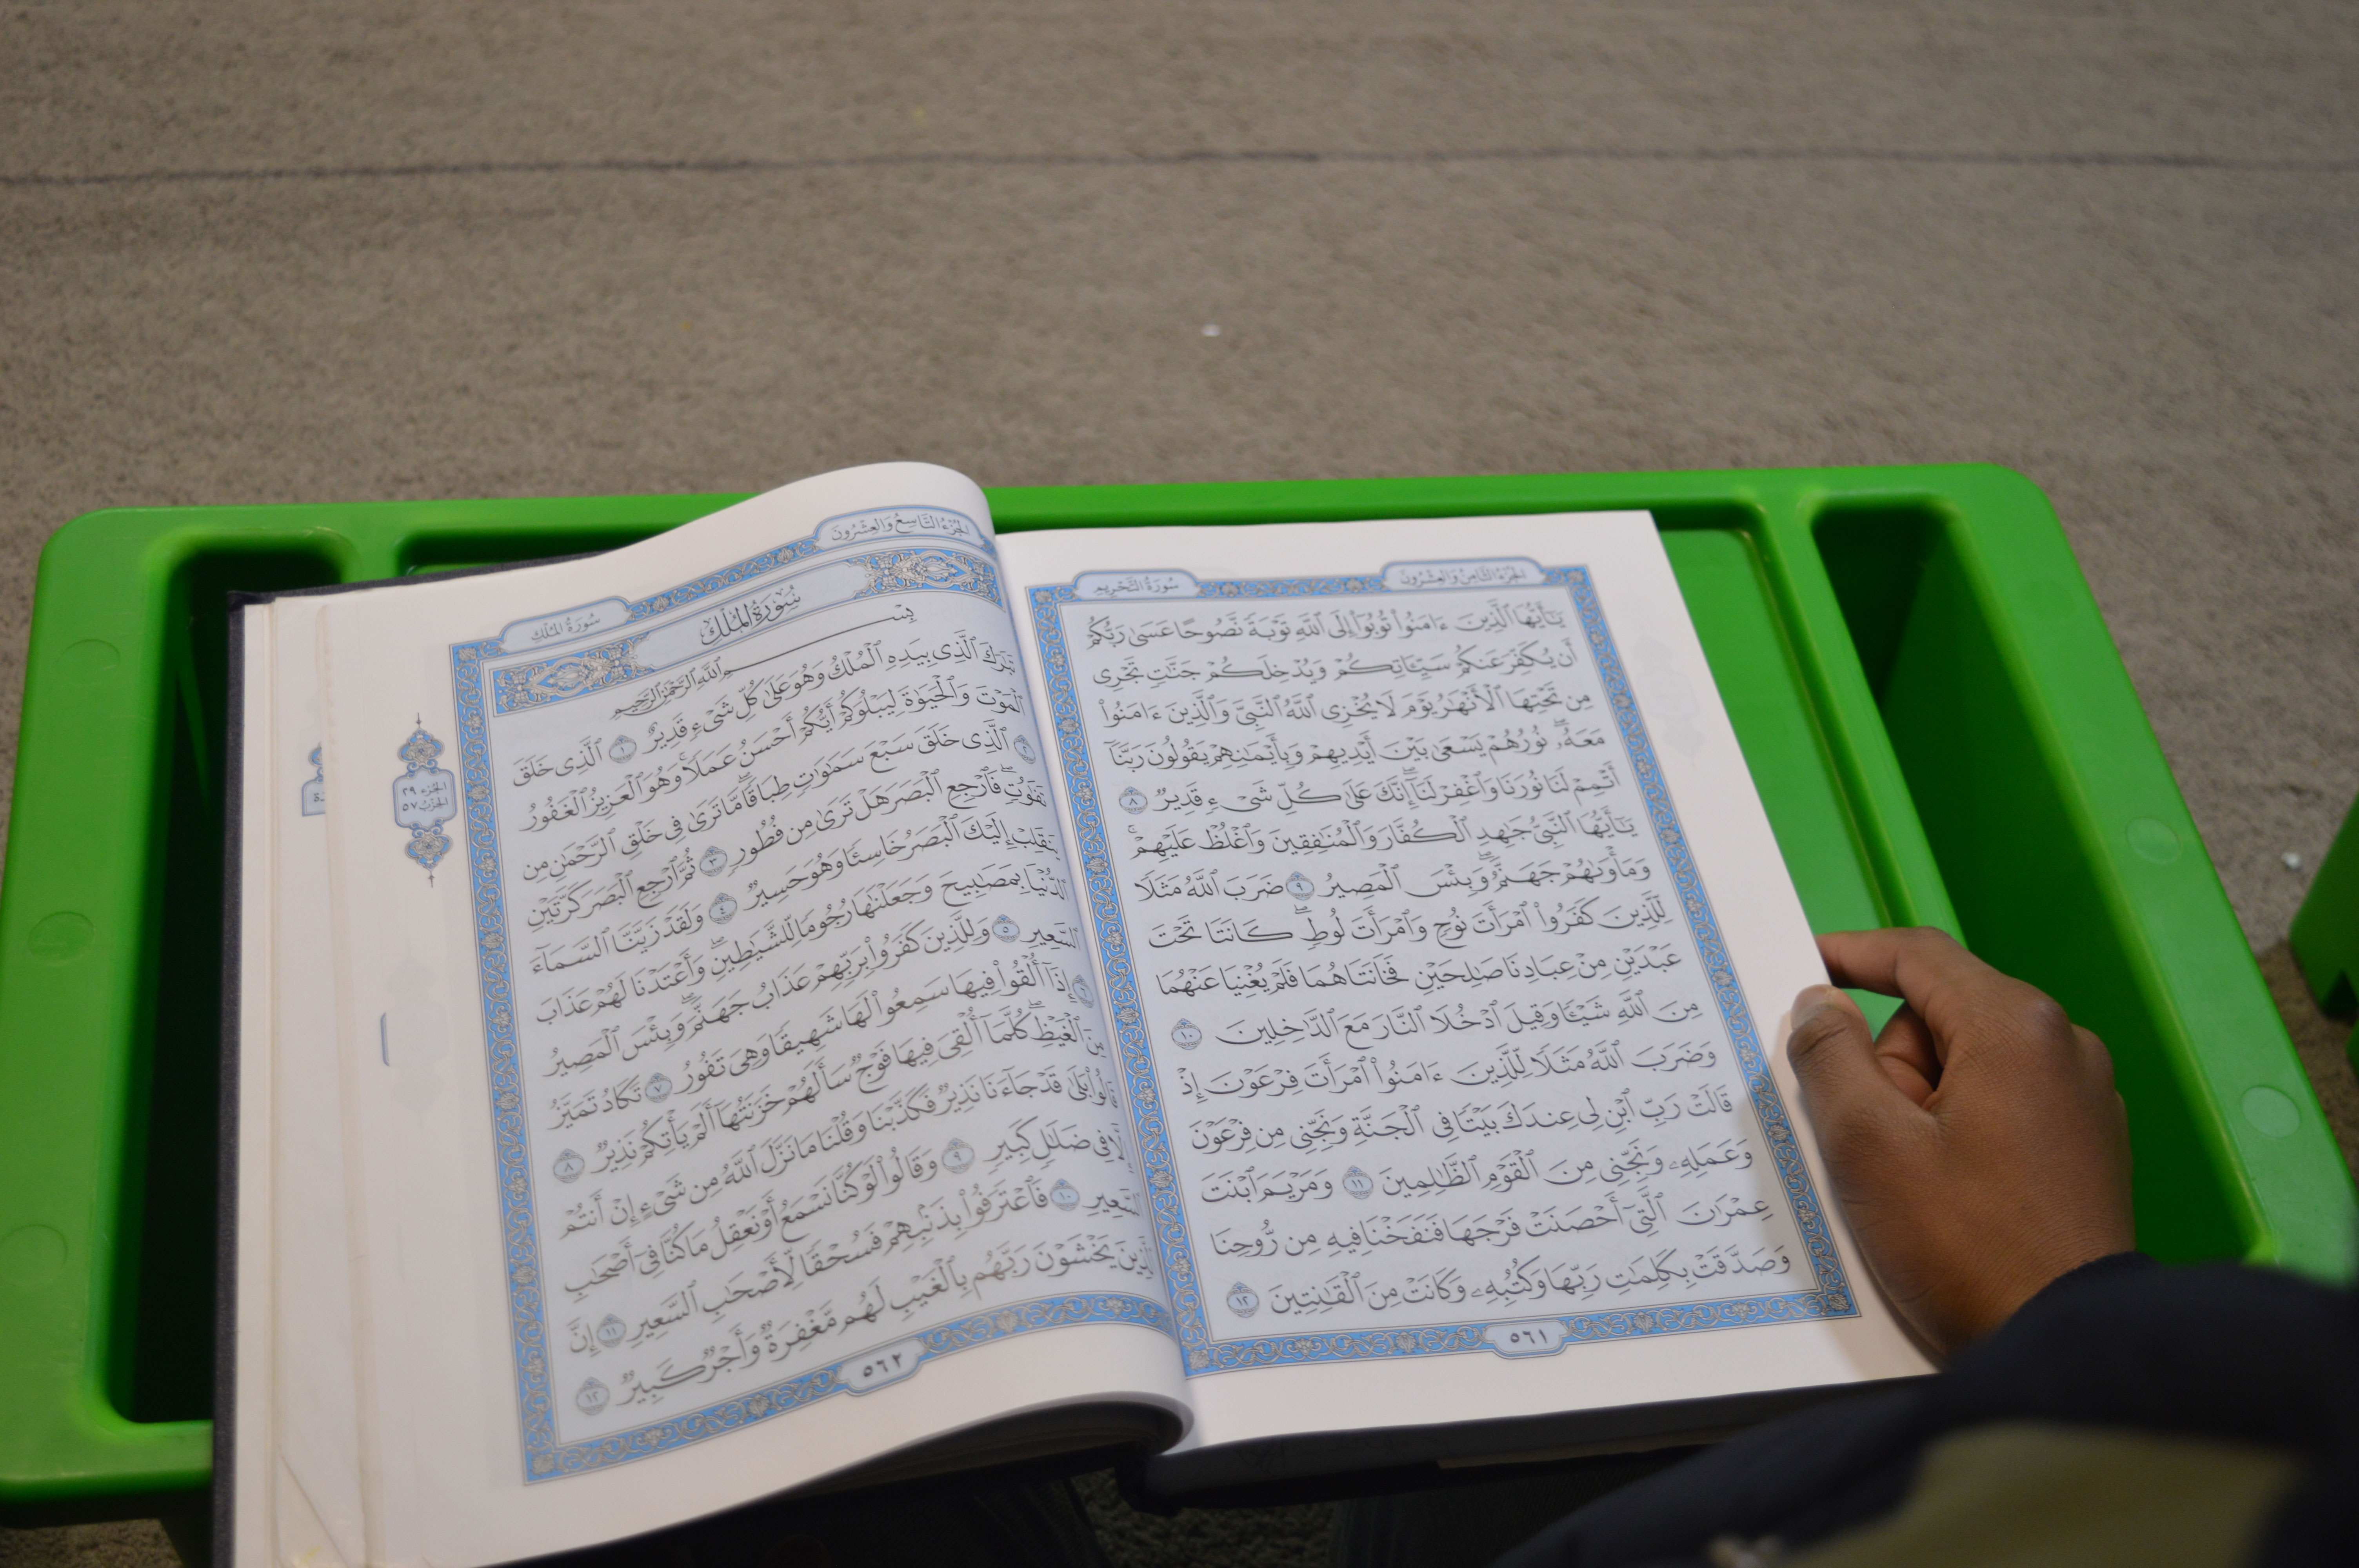 الجزء الثامن والعشرون
سورة التحريم
يَٰٓأَيُّهَا ٱلَّذِينَ ءَامَنُوا۟ تُوبُوٓا۟ إِلَى ٱللَّهِ تَوْبَةً نَّصُوحًا عَسَىٰ رَبُّكُمْ
أَن يُكَفِّرَ عَنكُمْ سَيِّـَٔاتِكُمْ وَيُدْخِلَكُمْ جَنَّٰتٍ تَجْرِى
مِن تَحْتِهَا ٱلْأَنْهَٰرُ يَوْمَ لَا يُخْزِى ٱللَّهُ ٱلنَّبِىَّ وَٱلَّذِينَ ءَامَنُوا۟
مَعَهُۥ ۖ نُورُهُمْ يَسْعَىٰ بَيْنَ أَيْدِيهِمْ وَبِأَيْمَٰنِهِمْ يَقُولُونَ رَبَّنَآ
أَتْمِمْ لَنَا نُورَنَا وَٱغْفِرْ لَنَآ ۖ إِنَّكَ عَلَىٰ كُلِّ شَىْءٍ قَدِيرٌ ٨
يَٰٓأَيُّهَا ٱلنَّبِىُّ جَٰهِدِ ٱلْكُفَّارَ وَٱلْمُنَٰفِقِينَ وَٱغْلُظْ عَلَيْهِمْ ۚ
وَمَأْوَىٰهُمْ جَهَنَّمُ ۖ وَبِئْسَ ٱلْمَصِيرُ ٩ ضَرَبَ ٱللَّهُ مَثَلًا
لِّلَّذِينَ كَفَرُوا۟ ٱمْرَأَتَ نُوحٍ وَٱمْرَأَتَ لُوطٍ ۖ كَانَتَا تَحْتَ
عَبْدَيْنِ مِنْ عِبَادِنَا صَٰلِحَيْنِ فَخَانَتَاهُمَا فَلَمْ يُغْنِيَا عَنْهُمَا
مِنَ ٱللَّهِ شَيْـًٔا وَقِيلَ ٱدْخُلَا ٱلنَّارَ مَعَ ٱلدَّٰخِلِينَ ١٠
وَضَرَبَ ٱللَّهُ مَثَلًا لِّلَّذِينَ ءَامَنُوا۟ ٱمْرَأَتَ فِرْعَوْنَ إِذْ
قَالَتْ رَبِّ ٱبْنِ لِى عِندَكَ بَيْتًا فِى ٱلْجَنَّةِ وَنَجِّنِى مِن فِرْعَوْنَ
وَعَمَلِهِۦ وَنَجِّنِى مِنَ ٱلْقَوْمِ ٱلظَّٰلِمِينَ ١١ وَمَرْيَمَ ٱبْنَتَ
عِمْرَٰنَ ٱلَّتِىٓ أَحْصَنَتْ فَرْجَهَا فَنَفَخْنَا فِيهِ مِن رُّوحِنَا
وَصَدَّقَتْ بِكَلِمَٰتِ رَبِّهَا وَكُتُبِهِۦ وَكَانَتْ مِنَ ٱلْقَٰنِتِينَ ١٢
٥٦١
الجزء التاسع والعشرون
سورة الملك
سورة الملك
بِسْمِ ٱللَّهِ ٱلرَّحْمَٰنِ ٱلرَّحِيمِ
تَبَٰرَكَ ٱلَّذِى بِيَدِهِ ٱلْمُلْكُ وَهُوَ عَلَىٰ كُلِّ شَىْءٍ قَدِيرٌ ١ ٱلَّذِى خَلَقَ
ٱلْمَوْتَ وَٱلْحَيَوٰةَ لِيَبْلُوَكُمْ أَيُّكُمْ أَحْسَنُ عَمَلًا ۚ وَهُوَ ٱلْعَزِيزُ ٱلْغَفُورُ
٢ ٱلَّذِى خَلَقَ سَبْعَ سَمَٰوَٰتٍ طِبَاقًا ۖ مَّا تَرَىٰ فِى خَلْقِ ٱلرَّحْمَٰنِ مِن
تَفَٰوُتٍ ۖ فَٱرْجِعِ ٱلْبَصَرَ هَلْ تَرَىٰ مِن فُطُورٍ ٣ ثُمَّ ٱرْجِعِ ٱلْبَصَرَ كَرَّتَيْنِ
يَنقَلِبْ إِلَيْكَ ٱلْبَصَرُ خَاسِئًا وَهُوَ حَسِيرٌ ٤ وَلَقَدْ زَيَّنَّا ٱلسَّمَآءَ
ٱلدُّنْيَا بِمَصَٰبِيحَ وَجَعَلْنَٰهَا رُجُومًا لِّلشَّيَٰطِينِ ۖ وَأَعْتَدْنَا لَهُمْ عَذَابَ
ٱلسَّعِيرِ ٥ وَلِلَّذِينَ كَفَرُوا۟ بِرَبِّهِمْ عَذَابُ جَهَنَّمَ ۖ وَبِئْسَ ٱلْمَصِيرُ
٦ إِذَآ أُلْقُوا۟ فِيهَا سَمِعُوا۟ لَهَا شَهِيقًا وَهِىَ تَفُورُ ٧ تَكَادُ تَمَيَّزُ
مِنَ ٱلْغَيْظِ ۖ كُلَّمَآ أُلْقِىَ فِيهَا فَوْجٌ سَأَلَهُمْ خَزَنَتُهَآ أَلَمْ يَأْتِكُمْ نَذِيرٌ ٨
قَالُوا۟ بَلَىٰ قَدْ جَآءَنَا نَذِيرٌ فَكَذَّبْنَا وَقُلْنَا مَا نَزَّلَ ٱللَّهُ مِن شَىْءٍ إِنْ أَنتُمْ
إِلَّا فِى ضَلَٰلٍ كَبِيرٍ ٩ وَقَالُوا۟ لَوْ كُنَّا نَسْمَعُ أَوْ نَعْقِلُ مَا كُنَّا فِىٓ أَصْحَٰبِ
ٱلسَّعِيرِ ١٠ فَٱعْتَرَفُوا۟ بِذَنۢبِهِمْ فَسُحْقًا لِّأَصْحَٰبِ ٱلسَّعِيرِ ١١ إِنَّ
ٱلَّذِينَ يَخْشَوْنَ رَبَّهُم بِٱلْغَيْبِ لَهُم مَّغْفِرَةٌ وَأَجْرٌ كَبِيرٌ ١٢
الجزء ٢٩
الحزب ٥٧
٥٦٢